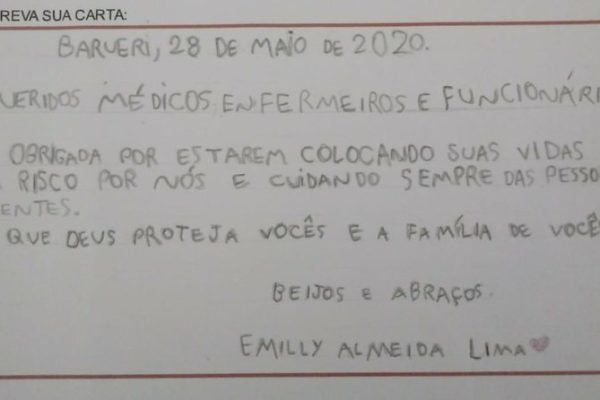 REVA SUA CARTA:
BARUERI, 28 DE MAIO DE 2020.
UERIDOS MÉDICOS, ENFERMEIROS E FUNCIONÁRI
OBRIGADA POR ESTAREM COLOCANDO SUAS VIDAS
RISCO POR NÓS E CUIDANDO SEMPRE DAS PESSO
ENTES.
QUE DEUS PROTEJA VOCÊS E A FAMÍLIA DE VOCÊ
BEIJOS E ABRAÇOS.
EMILLY ALMEIDA LIMA